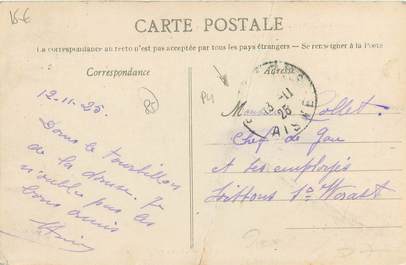 15 €
CARTE POSTALE
La correspondance au recto n'est pas acceptée par tous les pays étrangers – Se renseigner à la Poste
Correspondance
Adresse
12-11-25.
Dans le tourbillon
de la danse. Je
n'oublie pas les
bons amis
85
P4
13-11
25
AISNE
Collet
Chef de Gare
et ses employés